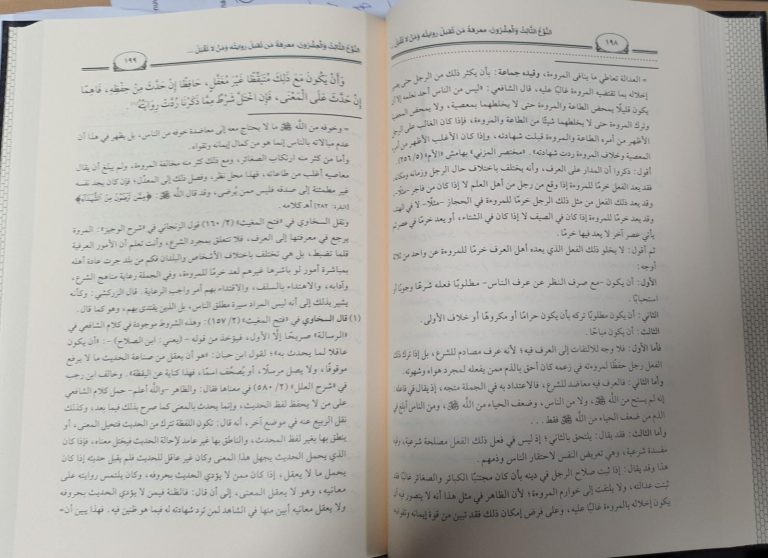 ١٩٨
النَّوْعُ الثَّالِثُ وَالعِشْرُونَ: معرفة مَن تُقبَلُ روايتُه ومَنْ لا تُقبَلُ ...
= العدالة تعاطي ما ينافي المروءة، وقيده جماعة: بأن يكثر ذلك من الرجل حتى يصير
إخلاله بما تقتضيه المروءة غالبًا عليه، قال الشافعي: «ليس من الناس أحد نعلمه إلا أن
يكون قليلًا يمحض الطاعة والمروءة حتى لا يخلطهما بمعصية، ولا يمحض المعصية
وترك المروءة حتى لا يخلطهما شيئًا من الطاعة والمروءة، فإذا كان الغالب على الرجل
الأظهر من أمره الطاعة والمروءة قبلت شهادته، وإذا كان الأغلب الأظهر من أمره
المعصية وخلاف المروءة ردت شهادته». «مختصر المزني» بهامش «الأم» (٢٥٦/٥).
أقول: ذكروا أن المدار على العرف، وأنه يختلف باختلاف حال الرجل وزمانه ومكانه،
فقد يعد الفعل خرمًا للمروءة إذا وقع من رجل من أهل العلم لا إذا كان من تاجر -مثلًا-،
وقد يعد ذلك الفعل من مثل ذلك الرجل خرمًا للمروءة في الحجاز -مثلًا- لا في الهند،
وقد يعد خرمًا للمروءة إذا كان في الصيف لا إذا كان في الشتاء، أو يعد خرمًا في عصر
يأتي عصر آخر لا يعد فيها خرمًا.
ثم أقول: لا يخلو ذلك الفعل الذي يعده أهل العرف خرمًا للمروءة عن واحد من ثلاثة
أوجه:
الأول: أن يكون -مع صرف النظر عن عرف الناس- مطلوبًا فعله شرعًا وجوبًا أو
استحبابًا.
الثاني: أن يكون مطلوبًا تركه بأن يكون حرامًا أو مكروهًا أو خلاف الأولى.
الثالث: أن يكون مباحًا.
فأما الأول: فلا وجه للالتفات إلى العرف فيه؛ لأنه عرف مصادم للشرع، بل إذا ترك ذلك
الفعل رجل حفظًا لمروءته في زعمه كان أحق بالذم ممن يفعله لمجرد هواه وشهوته.
وأما الثاني: فالعرف فيه معاضد للشرع، فالاعتداد به في الجملة متجه، إذ يقال في فاعله:
إنه لم يستح من اللَّه ﷻ، ولا من الناس، وضعف الحياء من اللَّه ﷻ، ومن الناس أبلغ في
الذم من ضعف الحياء من اللَّه ﷻ فقط...
وأما الثالث: فقد يقال: يلتحق بالثاني؛ إذ ليس في فعل ذلك الفعل مصلحة شرعية، وفيه
مفسدة شرعية، وهي تعريض النفس لاحتقار الناس وذمهم.
هذا وقد يقال: إذا ثبت صلاح الرجل في دينه بأن كان مجتنبًا الكبائر والصغائر غالبًا فقد
ثبتت عدالته، ولا يلتفت إلى خوارم المروءة؛ لأن الظاهر في مثل هذا أنه لا يتصور فيه أن
يكون إخلاله بالمروءة غالبًا عليه، وعلى فرض إمكان ذلك فقد تبين من قوة إيمانه وتقواه
النَّوْعُ الثَّالِثُ وَالعِشْرُونَ: معرفة مَن تُقبَلُ روايتُه ومَنْ لا تُقبَلُ ...
١٩٩
وَأَنْ يَكُونَ مَعَ ذَلِكَ مُتَيَقِّظًا غَيْرَ مُغَفَّلٍ، حَافِظًا إِنْ حَدَّثَ مِنْ حِفْظِهِ، فَاهِمًا
إِنْ حَدَّثَ عَلَى الْمَعْنَى، فَإِنِ اخْتَلَّ شَرْطٌ مِمَّا ذَكَرْنَا رُدَّتْ رِوَايَتُهُ(١).
= وخوفه من اللَّه ﷻ ما لا يحتاج معه إلى معاضدة خوفه من الناس، بل يظهر في هذا أن
عدم مبالاته بالناس إنما هو من كمال إيمانه وتقواه.
وأما من كثر منه ارتكاب الصغائر، ومع ذلك كثر منه مخالفة المروءة، ولم يبلغ أن يقال
معاصيه أغلب من طاعاته، فهذا محل نظر، وفصل ذلك إلى المعدِّل؛ فإن كان يجد نفسه
غير مطمئنة إلى صدقه فليس ممن يُرضى، وقد قال اللَّه ﷻ: ﴿مِمَّن تَرْضَوْنَ مِنَ الشُّهَدَاءِ﴾
[البقرة: ٢٨٢] اهـ كلامه.
ونقل السخاوي في «فتح المغيث» (٢/ ١٦٠) قول الزنجاني في «شرح الوجيز»: المروءة
يرجع في معرفتها إلى العرف، فلا تتعلق بمجرد الشرع، وأنت تعلم أن الأمور العرفية
قلما تضبط، بل هي تختلف باختلاف الأشخاص والبلدان فكم من بلد جرت عادة أهله
بمباشرة أمور لو باشرها غيرهم لعد خرمًا للمروءة، وفي الجملة رعاية مناهج الشرع،
وآدابه، والاهتداء بالسلف، والاقتداء بهم أمر واجب الرعاية. قال الزركشي: وكأنه
يشير بذلك إلى أنه ليس المراد سيرة مطلق الناس، بل الذين يقتدى بهم، وهو كما قال.
(١) قال السخاوي في «فتح المغيث» (٢/ ١٥٧): وهذه الشروط موجودة في كلام الشافعي في
«الرسالة» صريحًا إلَّا الأول، فيؤخذ من قوله -(يعني: ابن الصلاح)-: «أن يكون
عاقلا لما يحدث به»؛ لقول ابن حبان: «هو أن يعقل من صناعة الحديث ما لا يرفع
موقوفًا، ولا يصل مرسلًا، أو يُصحِّف اسمًا، فهذا كناية عن اليقظة». وخالف ابن رجب
في «شرح العلل» (٢/ ٥٨٠) في معناها فقال: والظاهر -واللَّه أعلم- حمل كلام الشافعي
على من لا يحفظ لفظ الحديث، وإنما يحدث بالمعنى كما صرح بذلك فيما بعد، وكذلك
نقل الربيع عنه في موضع آخر، أنه قال: تكون اللفظة تترك من الحديث فتحيل المعنى، أو
ينطق بها بغير لفظ المحدث، والناطق بها غير عامد لإحالة الحديث فيختل معناه، فإذا كان
الذي يحمل الحديث يجهل هذا المعنى وكان غير عاقل للحديث فلم يقبل حديثه إذا كان
يحمل ما لا يعقل، إذا كان ممن لا يؤدي الحديث بحروفه، وكان يلتمس روايته على
معانيه، وهو لا يعقل المعنى، إلى أن قال: فالظنة فيمن لا يؤدي الحديث بحروفه
ولا يعقل معانيه أبين منها في الشاهد لمن ترد شهادته له فيما هو ظنين فيه. فهذا يبين أن=